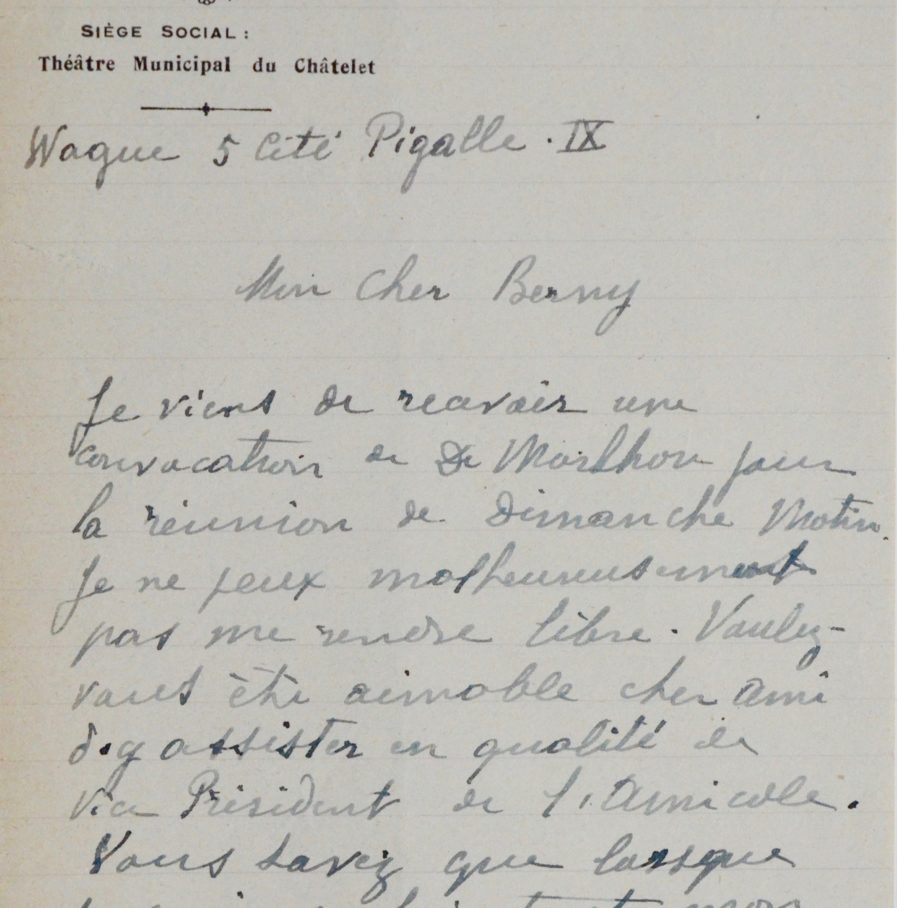 SIÈGE SOCIAL :
Théâtre Municipal du Châtelet
Wague 5 Cité Pigalle . IX
Mon Cher Berny
Je viens de recevoir une
convocation de De Morlhon pour
la réunion de Dimanche Matin.
Je ne peux malheureusement
pas me rendre libre. Voulez-
vous être aimable cher ami
d'y assister en qualité de
vice Président de l'Amicale.
Vous savez que lorsque